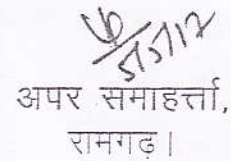 अपर समाहर्त्ता,
रामगढ़।